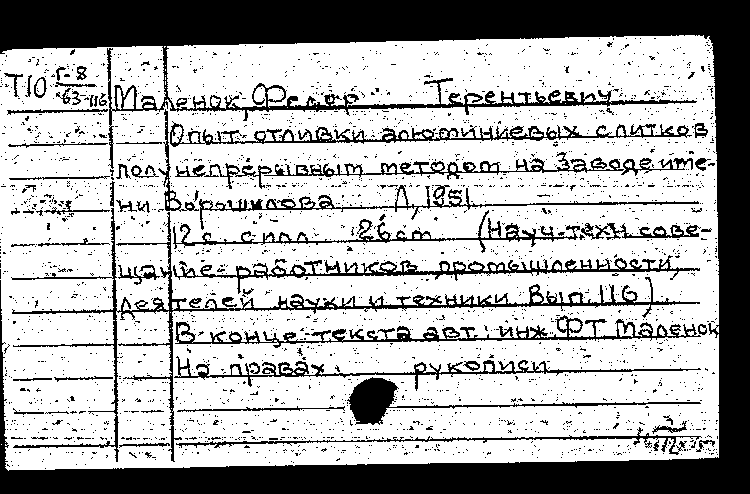 Т10 Г-8
63-116
Маленок, Федор Терентьевич
Опыт отливки алюминиевых слитков
полунепрерывным методом на Заводе име-
ни Ворошилова Л, 1951
12 с. с илл. 26 cm (Науч-техн. сове-
щание работников промышленности,
деятелей науки и техники. Вып. 116)
В конце текста авт: инж. ФТ Маленок
На правах рукописи